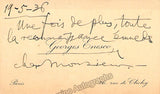 19-5-36
Une fois de plus, toute
la reconnaissance émue de
Georges Enesco
cher Monsieur
Paris rue de Clichy